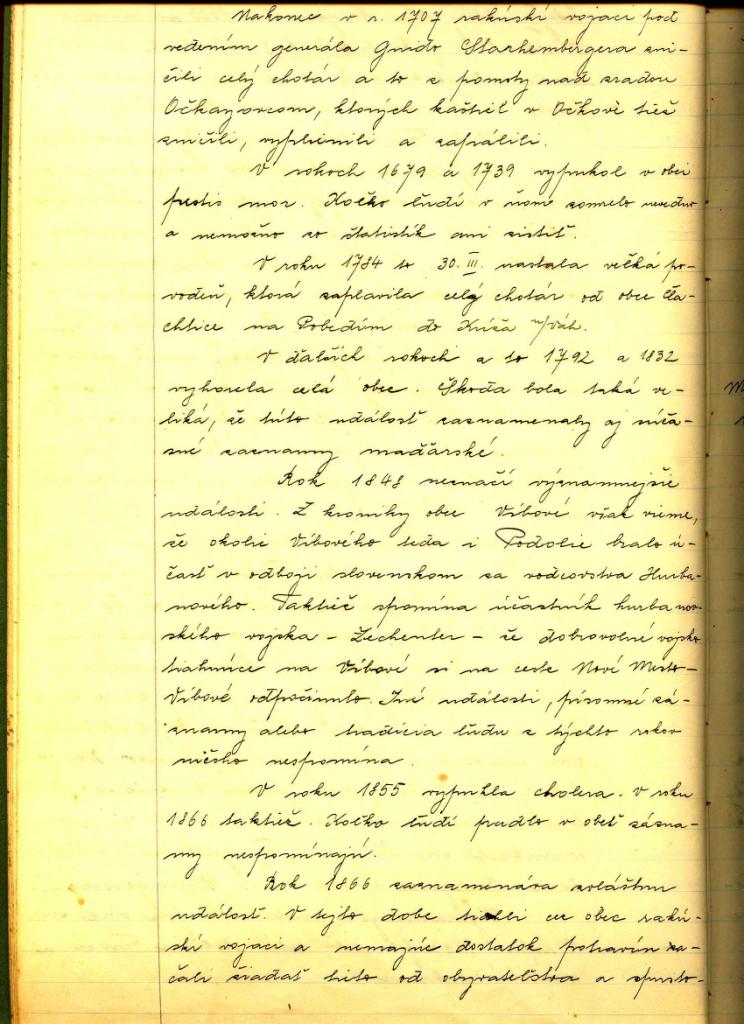 Nakonec v r. 1707 rakúski vojaci pod
vedením generála Guido Starhembergera zni-
čili celý chotár a to z pomsty nad zradou
Očkayovcom, ktorých kaštiel v Očkově tiež
zničili, vyplienili a zapálili.
V rokoch 1679 a 1739 vypukol v obci
prestio mor. Koľko ľudí v ňom zomrelo nevedno
a nemožno zo štatistík ani zistiť.
V roku 1784 to 30. III. nastala veľká po-
vodeň, ktorá zaplavila celý chotár od obce Ča-
chtice na Pobedim do Kríža n/Váh.
V ďalších rokoch a to 1792 a 1832
vyhorela celá obec. Škoda bola taká ve-
liká, že túto událosť zaznamenaly aj súča-
sné zaznamy maďarské.
Rok 1848 neznačí významnejšie
události. Z kroniky obce Vrbové však vieme,
že okolie Vrbového teda i Podolie bralo ú-
časť v odboji slovenskom za vodcovstva Hurba-
nového. Taktiež spomína účastník hurbanov-
ského vojska - Zechenter - že dobrovolné vojsko
tiahnúce na Vrbové si na ceste Nové Mesto-
Vrbové odpočinulo. Iné události, písomné zá-
znamy alebo tradícia ľudu z týchto rokov
ničoho nespomína.
V roku 1855 vypukla cholera. V roku
1866 taktiež. Koľko ľudí padlo v obeť zázna-
my nespomínajú.
Rok 1866 zaznamenáva zvláštnu
událosť. V tejto dobe tiahli cez obec rakú-
skí vojaci a nemajúc dostatok potravín za-
čali žiadať tieto od obyvateľstva a spusto-